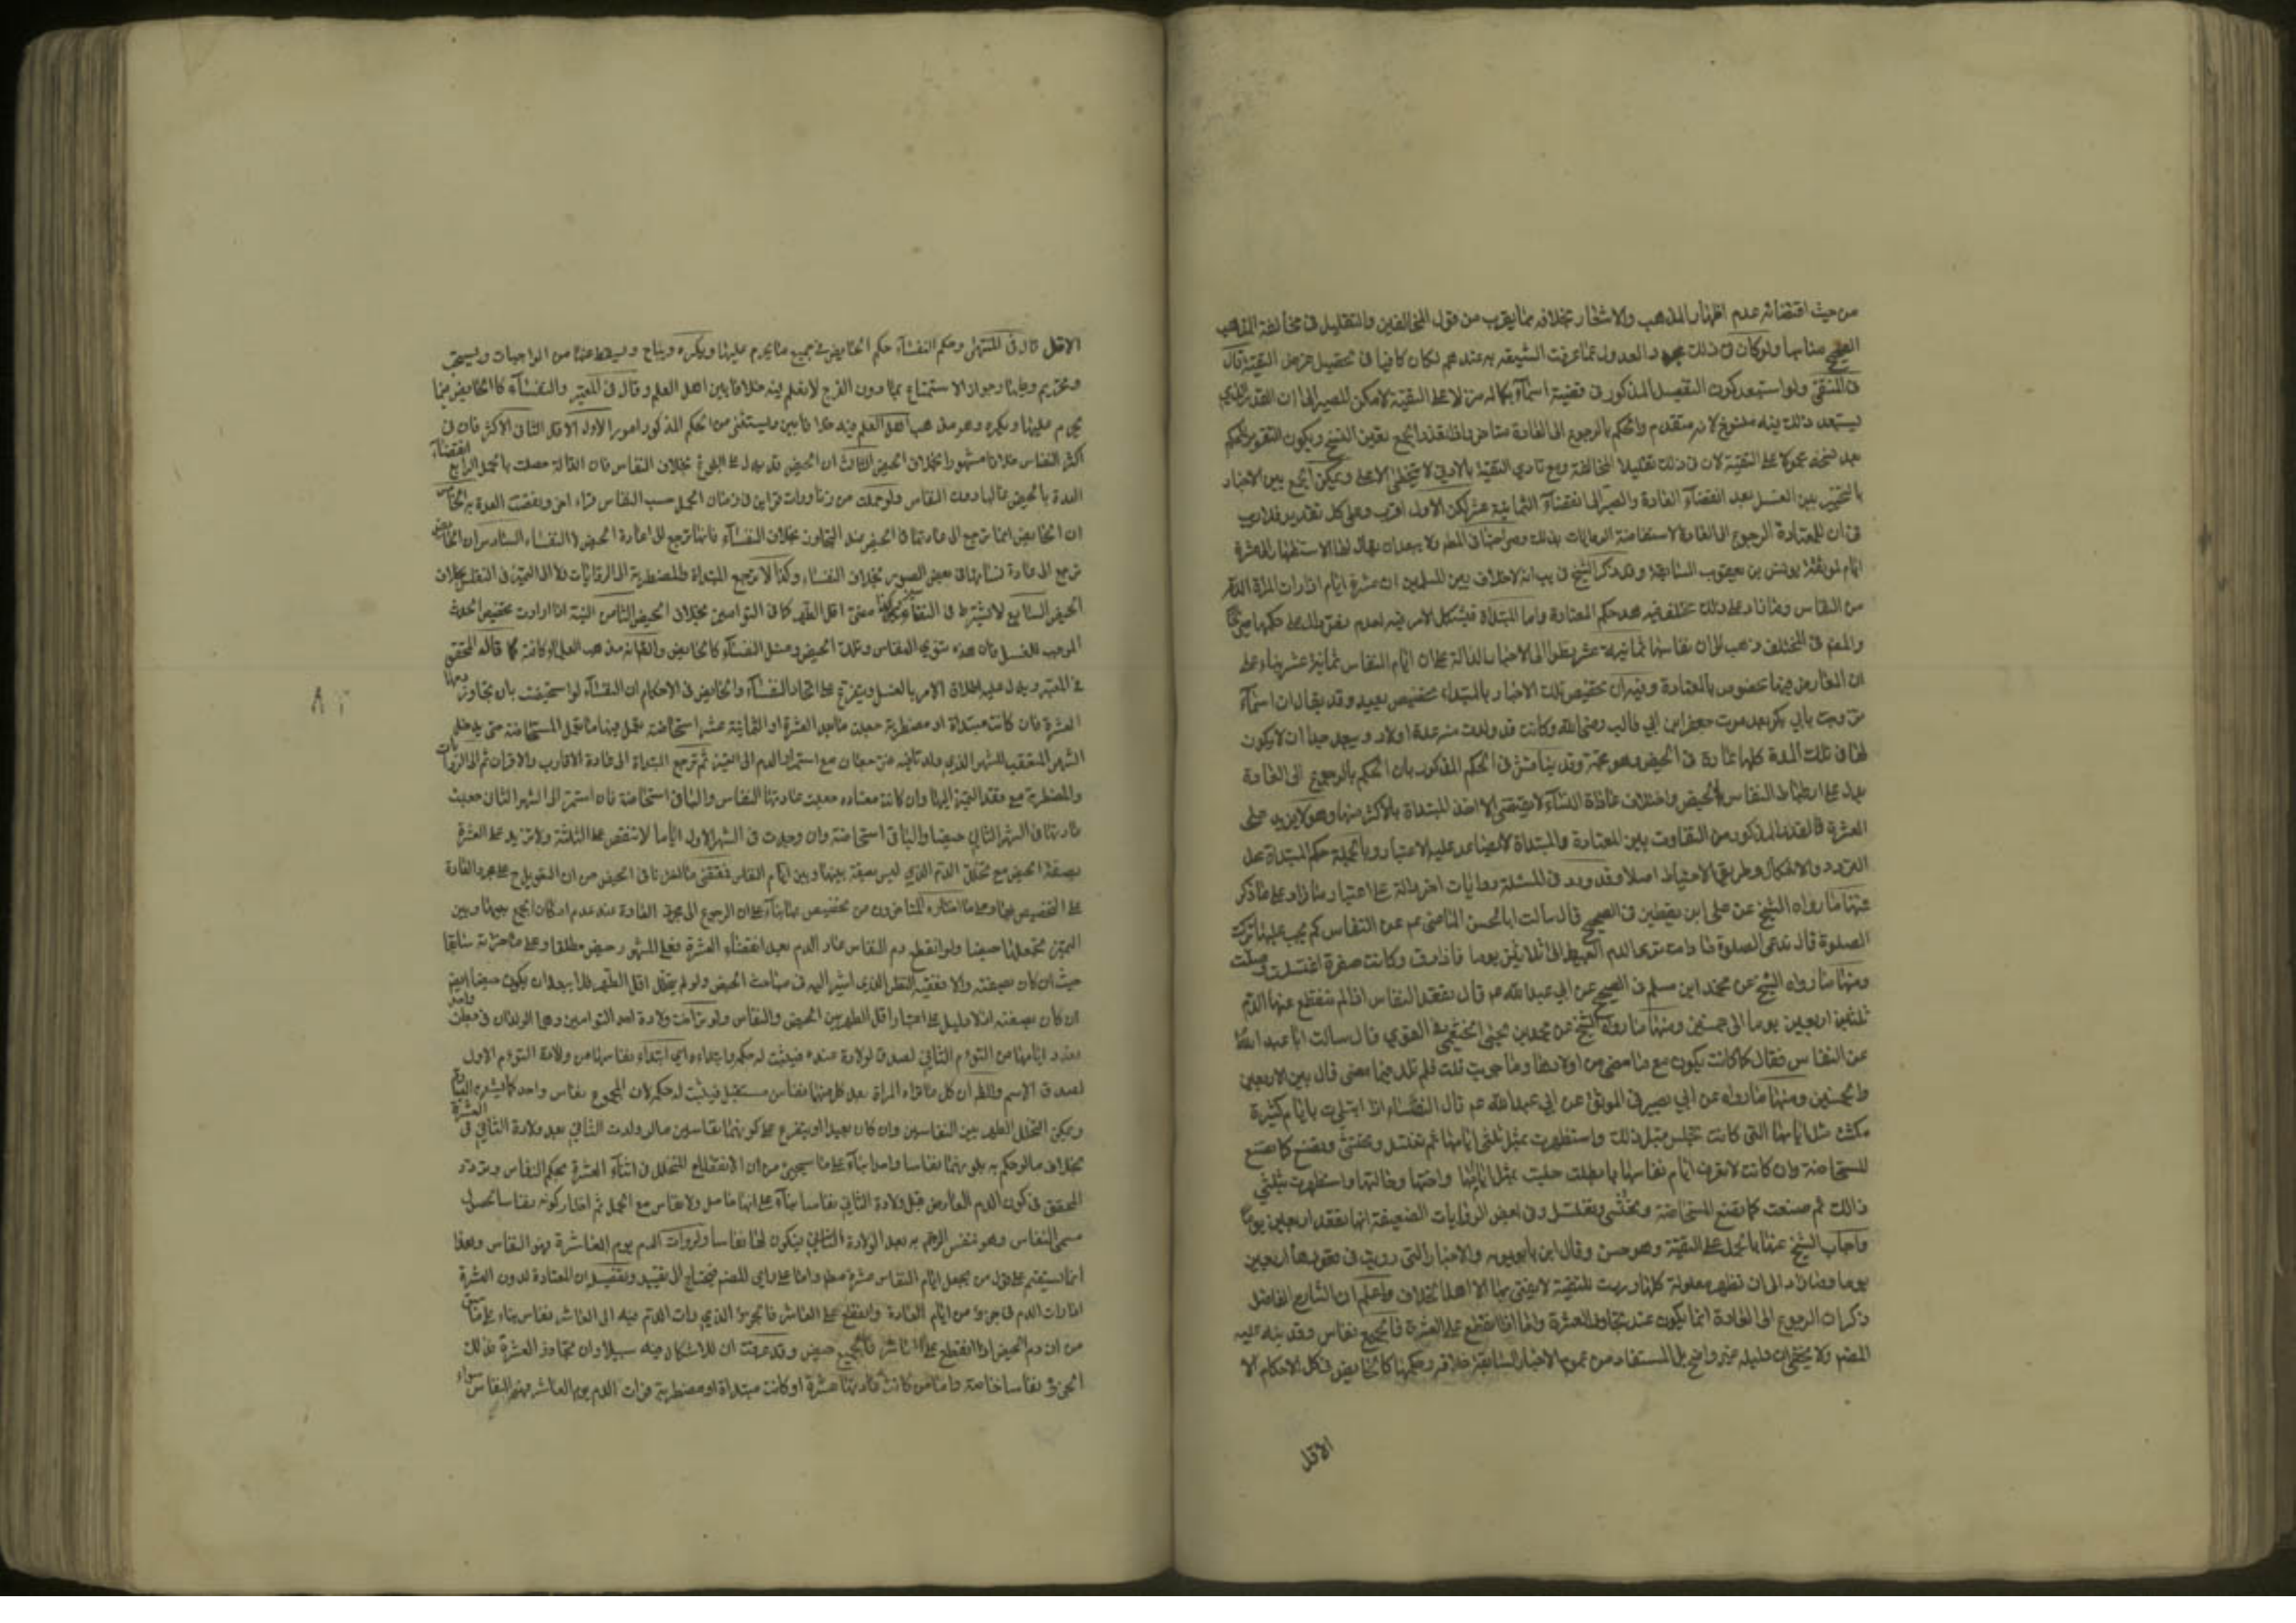 من حيث اقتضائه عدم اظهار المذهب والاشعار بخلافه مما يقرب من قول المخالفين والتقليل فى مخالفة المذاهب
الصحيح مناسبا ولو كان فى ذلك مجرد العدول عما عرفت الشيعة به عندهم لكان كافيا فى تحصيل غرض التقية قال
فى المنتقى ولو استبعد كون التفصيل المذكور فى قضية اسماء بكماله منزلا على التقية لامكن المصير الى ان القدر الذي
يستبعد ذلك فيه منسوخ لانه متقدم والحكم بالرجوع الى العادة متاخر واذا تعذر الجمع تعين النسخ ويكون التقرير للحكم
بعد نسخه محمولا على التقية لان فى ذلك تقليلا للمخالفة ومع تادي التقية بالادنى لا يتخطى الاعلى ويمكن الجمع بين الاخبار
بالتخيير بين الغسل بعد انقضاء العادة والصبر الى انقضاء الثمانية عشر لكن الاول اقرب وعلى كل تقدير فلا ريب
فى ان للمعتادة الرجوع الى العادة لاستفاضة الروايات بذلك وصراحتها فى المط ولا يبعد ان يقال لها الاستظهار الى عشرة
ايام لموثقة يونس بن يعقوب السابقة وقد ذكر الشيخ فى يب انه لا خلاف بين المسلمين ان عشرة ايام اذا رات المراة الدم
من النفاس وما زاد على ذلك مختلف فيه هذا حكم المعتادة واما المبتداة فيشكل الامر فيه لعدم
والمص فى المختلف ذهب الى ان نفاسها ثمانية عشر نظرا الى الاخبار الدالة على ان ايام النفاس ثمانية عشر بناء على
ان المعارض فيها مخصوص بالمعتادة وفيه ان تخصيص تلك الاخبار بالمبتداة تخصيص بعيد وقد يقال ان اسماء
تزوجت بابي بكر بعد موت جعفر ابن ابي طالب رضى الله وكانت قد ولدت منه عدة اولاد ويبعد جدا ان لا يكون
لها فى تلك المدة كلها عادة فى الحيض وهو متجه وقد يناقش فى الحكم المذكور بان الحكم بالرجوع الى العادة
يدل على ارتباط النفاس بالحيض واختلاف عادة النساء لا يقتضي الا اخذ المبتداة بالاكثر منها وهو لا يزيد على
العشرة فالقدر المذكور من التفاوت بين المعتادة والمبتداة لا يساعد عليه الاعتبار وبالجملة حكم المبتداة محل
التردد والاشكال وطريق الاحتياط اصلا وقد ورد فى المسئلة روايات اخر دالة على اعتبار ما زاد على ما ذكر
منها ما رواه الشيخ عن على ابن يقطين فى الصحيح قال سالت ابا الحسن الماضي عم عن النفاس كم يجب عليها ترك
الصلوة قال تدعى الصلوة ما دامت ترى الدم العبيط الى ثلاثين يوما فاذا رق وكانت صفرة اغتسلت وصلت
ومنها ما رواه الشيخ عن محمد ابن مسلم فى الصحيح عن ابي عبد الله عم قال تقعد النفاس اذا لم ينقطع عنها الدم
ثلثين اربعين يوما الى خمسين ومنها ما رواه الشيخ عن محمد بن يحيى الخثعمي فى القوي قال سالت ابا عبد الله
عن النفاس فقال كما كانت يكون مع ما مضى من اولادها وما جربت قلت فلم تلد فيما مضى قال بين الاربعين
والخمسين ومنها ما رواه عن ابي بصير فى الموثق عن ابي عبد الله عم قال النفساء اذا ابتليت بايام كثيرة
مكثت مثل ايامها التى كانت تجلس قبل ذلك واستظهرت بمثل ثلثى ايامها ثم تغتسل وتحتشي وتصنع كما تصنع
المستحاضة وان كانت لا تعرف ايام نفاسها فابتليت جلست بمثل ايام امها او اختها وخالتها واستظهرت بثلثي
ذالك ثم صنعت كما تصنع المستحاضة وتحتشي وتغتسل وفى بعض الروايات الضعيفة انها تقعد اربعين يوما
واجاب الشيخ عنها بالحمل على التقية وهو حسن وقال ابن بابويه والاخبار التى رويت فى قعودها اربعين
يوما وما زاد الى ان تطهر معلولة كلها وردت للتقية لا يفتى بها الا اهل الخلاف واعلم ان الشارح الفاضل
ذكر ان الرجوع الى العادة انما يكون عند تجاوز العشرة واما اذا انقطع على العشرة فالجميع نفاس وقد نبه عليه
المصنف ولا يخفى ان دليله غير واضح بل المستفاد من عموم الاخبار السابقة خلافه وحكمها كالحايض فى كل الاحكام الا
الاقل
الاقل قال فى المنتهى وحكم النفساء حكم الحايض فى جميع ما يحرم عليها ويكره ويباح ويسقط عنها من الواجبات ويستحب
وتحريم وطيها وجواز الاستمتاع بما دون الفرج لا نعلم فيه خلافا بين اهل العلم وقال فى المعتبر والنفساء كالحايض فيما
يحرم عليها ويكره وهو مذهب اهل العلم فيه خلافا بين ويستثنى من الحكم المذكور امور الاول الاقل الثانى الاكثر فان فى
اكثر النفاس خلافا مشهورا بخلاف الحيض الثالث ان الحيض قد يدل على البلوغ بخلاف النفاس فان الدلالة حصلت بالحمل الرابع انقضاء
العدة بالحيض غالبا دون النفاس ولو حملت من زنا ورات قراين فى زمان الحمل حسب النفاس قراء اخر وانقضت العدة به الخامس
ان الحايض انما ترجع الى عادتها فى الحيض عند التجاوز بخلاف النفساء فانها ترجع الى عادة الحيض لا النفساء السادس ان الحايض
ترجع الى عادة نسائها فى بعض الصور بخلاف النفساء وكذا لا ترجع المبتداة والمضطربة الى الروايات ولا الى التميز فى النفاس بخلاف
الحيض السابع لا يشترط فى النفاس مضي اقل الطهر كما فى التوامين بخلاف الحيض الثامن النية اذا ارادت تخصيص الحدث
الموجب للغسل فان هذه تنوي النفاس وتلك الحيض وغسل النفساء كالحايض مذهب العلماء كافة كما قاله المحقق
فى المعتبر ويدل عليه اطلاق الامر بالغسل ويتفرع على اتحاد النفساء والحايض فى الاحكام ان النفساء لو استحيضت بان تجاوز دمها
العشرة فان كانت مبتداة او مضطربة جعلت ما بعد العشرة او الثمانية عشر استحاضة تعمل فيها ما تعمل المستحاضة حتى يدخل
الشهر المتعقب للشهر الذي ولدت فيه مع استمرار الدم الى التميز ثم ترجع المبتداة الى عادة الاقارب والاقران ثم الى الروايات
والمضطربة مع فقد التميز اليها وان كانت معتاده جعلت عادتها النفاس والباقى استحاضة فان استمر الى الشهر الثانى جعلت
عادتها فى الشهر الثاني حيضا والباقى استحاضة وان وجدت فى الشهر الاول اياما لا تنقص على الثلثة ولا تزيد على العشرة
بصفة الحيض مع تخلل الدم الذي ليس بصفة بينها وبين ايام النفاس فمقتضى ما اسلفنا فى الحيض من ان التعويل على مجرد العادة
التميز تجعلها حيضا ولو انقطع دم النفاس عاد الدم بعد انقضاء العشرة فعلى المشهور حيض مطلقا وعلى ما حررناه سابقا
حيث ان كان بصفته والا ففيه النظر الذي اشير اليه فى مباحث الحيض ولو لم يتخلل اقل الطهر فلا يبعد ان يكون حيضا ايضا
ان كان بصفته اذ لا دليل على اعتبار اقل الطهر بين الحيض والنفاس ولو تراخت ولادة احد التوامين وهما الولدان فى بطن واحد
بعدد ايامها من التوام الثاني لصدق الولادة عنده فيثبت له حكمها وابتداءه اي ابتداء نفاسها من ولادة التوام الاول
لصدق الاسم والظ ان كل ما تراه المراة بعد كل منهما نفاس مستقبل فيثبت له حكمه لان المجموع نفاس واحد
ويمكن التخلل الطهر بين النفاسين وان كان بعيدا ويتفرع على كونهما نفاسين ما لو ولدت الثاني بعد ولادة الثاني فى العشرة
بخلاف ما لو حكم بكونهما نفاسا واحدا بناء على ما سيجئ من ان الانقطاع المتخلل فى اثناء العشرة بحكم النفاس وتردد
المحقق فى كون الدم العارض قبل ولادة الثاني نفاسا بناء على انها حامل ولا نفاس مع الحمل ثم اختار كونه نفاسا لحصول
مسمى النفاس وهو تنفس الرحم به بعد الولادة فيكون لها نفاسا ولو رات الدم يوم العاشرة فهو النفاس وهذا
انما يستقيم على قول من يجعل ايام النفاس عشرة مطلقا واما على راي المصنف فيحتاج الى تقييد وتفصيل ان المعتادة لدون العشرة
اذا رات الدم فى جزء من ايام العادة وانقطع على العاشر فالجزء الذي رات الدم فيه الى العاشر نفاس بناء على ما
من ان دم الحيض اذا انقطع على العاشر فالجميع حيض وقد عرفت ان للاشكال فيه سبيلا وان تجاوز العشرة فذلك
الجزء نفاسا خاصة واما من كانت عادتها عشرة او كانت مبتداة او مضطربة فرات الدم يوم العاشر فهو النفاس سواء